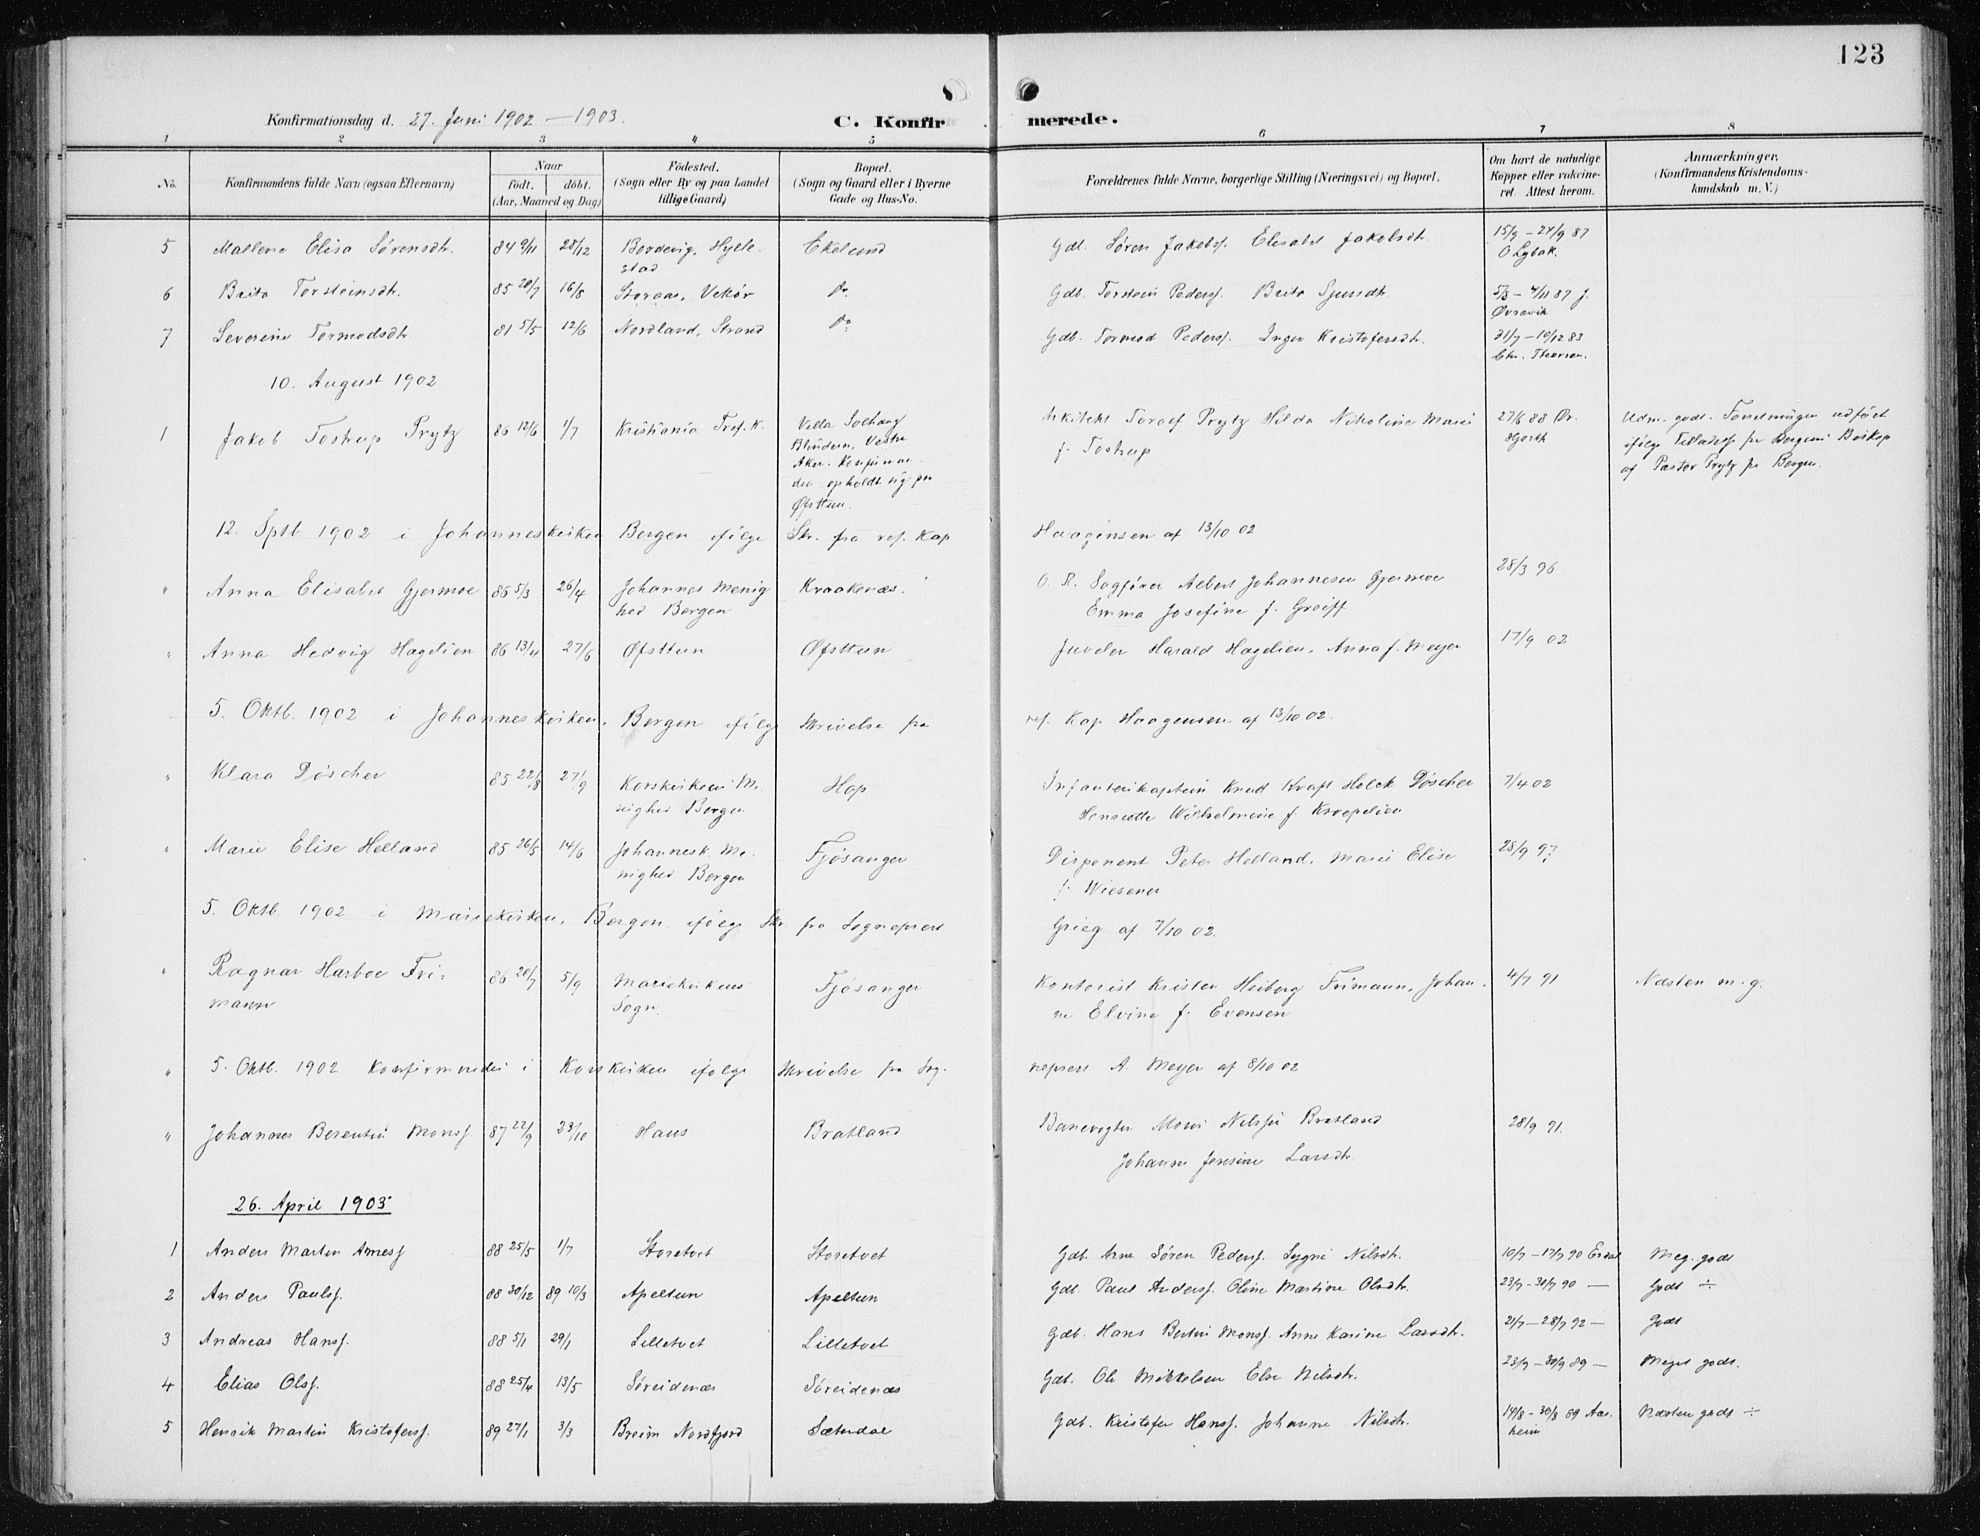 123
Konfirmationsdag d. 27. Juni 1902 — 1903.
C. Konfirmerede.
1 2 3 4 5 6 7 8
No. Konfirmandens fulde Navn (ogsaa Efternavn) Naar født. døbt. (Aar, Maaned og Dag) Fødested. (Sogn eller By og paa Landet tillige Gaard) Bopæl. (Sogn og Gaard eller i Byerne Gade og Hus-No. Forældrenes fulde Navne, borgerlige Stilling (Næringsvei) og Bopæl. Om havt de naturlige Kopper eller vakcineret. Attest herom. Anmærkninger. (Konfirmandens Kristendomskundskab m. V.)
5 Mallene Elisa Sørensdt. 84 9/11 28/12 Bordevig, Hyllestad Ekelund Gdb. Søren Jakobsf. Elisabet Jakobsdt. 15/9 – 24/9 87
6 Brita Torsteinsdt. 85 20/7 16/8 Storaas, Vikør do Gdb. Torstein Pedersf. Brita Sjursdt. 5/8 – 4/11 87
7 Severine Tormodsdt. 81 5/5 12/6 Nordland, Strand do Gdb. Tormod Pedersf. Inger Kristofersdt. 21/7 – 10/12 83 Chr. Thorsen.
10. August 1902
1 Jakob Tostrup Prytz 86 12/6 1/7 Kristiania Tref. K. Villa Solhaug Blindern, Vestre Aker. Konfirmanden opholdt sig paa Øfsttun. Arkitekt Torolf Prytz Hilda Nikoline Marie f. Tostrup 27/6 88 Dr. Hjorth Udm. godt. Forretningen udført ifølge Tilladelse fra Bergens Biskop af Pastor Prytz fra Bergen.
12. Sptb. 1902 i Johanneskirken Bergen ifølge Skr. fra res. Kap Haagensen af 13/10 02
" Anna Elisabet Gjermoe 85 5/3 26/4 Johannes Menighed Bergen Kraakenæs. O. R. Sagfører Albert Johannesen Gjermoe Emma Josefine f. Greiff 28/3 96
" Anna Hedvig Hagelien 86 13/4 27/6 Øfsttun Øfsttun Juveler Harald Hagelien, Anna f. Meyer 17/9 02
5. Oktb. 1902 i Johanneskirken, Bergen ifølge Skrivelse fra res. Kap Haagensen af 13/10 02.
" Klara Døscher 85 22/8 27/9 Korskirkens Menighed Bergen Hop Infanterikaptein Knud Kraft Holck Døscher Henriette Wilhelmine f. Kroepelien 7/4 02
" Marie Elise Helland 85 26/5 14/6 Johannesk. Menighed Bergen Fjøsanger Disponent Peter Helland, Marie Elise f. Wiesener 28/9 97
5. Oktb. 1902 i Mariekirken, Bergen ifølge Skr. fra Sogneprest Grieg af 7/10 02.
" Ragnar Harboe Frimann 86 20/7 5/9 Mariekirkens Sogn. Fjøsanger Kontorist Kristen Heiberg Frimann, Johanne Elvine f. Evensen 4/7 91 Næsten m. g.
" 5. Oktb. 1902 Konfirmeredes i Korskirken ifølge Skrivelse fra Sogneprest A. Meyer af 8/10 02
" Johannes Berentin Monsf. 87 22/9 23/10 Haus Bratland Banevogter Mons Nilsen Bratland Johanne Jensine Larsdt. 28/9 91.
26. April 1903
1 Anders Martin Arnesf. 88 25/5 1/7 Storetvet Storetvet Gdb. Arne Søren Pedersf. Sygni Nilsdt. 10/7 – 17/7 90 Meg. godt
2 Anders Paulsf. 88 30/12 89 10/3 Apeltun Apeltun Gdb. Paul Andersf. Oline Martine Olsdt. 23/7 – 30/7 90 — Godt ÷
3 Andreas Hansf. 88 5/1 29/1 Lilletvet Lilletvet Gdb. Hans Bertin Monsf. Anne Karine Larsdt. 21/7 – 28/7 92 — Godt
4 Elias Olsf. 88 25/4 13/5 Søreidenæs Søreidenæs Gdb. Ole Mikkelsen Else Nilsdt. 23/9 – 30/9 89 — Meget godt.
5 Henrik Martin Kristofersf. 89 27/1 3/3 Breim Nordfjord Sæterdal Gdb. Kristofer Hansf. Johanne Nilsdt. 19/8 – 30/8 89 Aarheim Næsten godt ÷